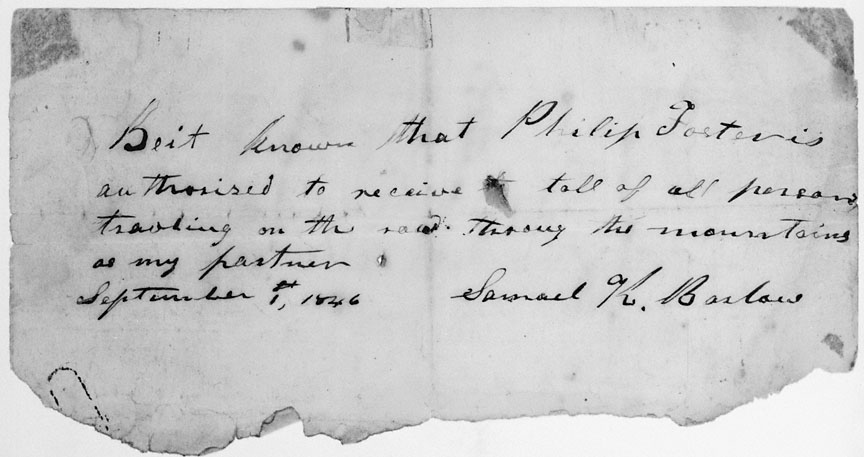 Beit known that Philip Foster is
authorised to receive toll of all persons
travling on the road throug the mountains
as my partner
September 1st, 1846 Samuel K. Barlow